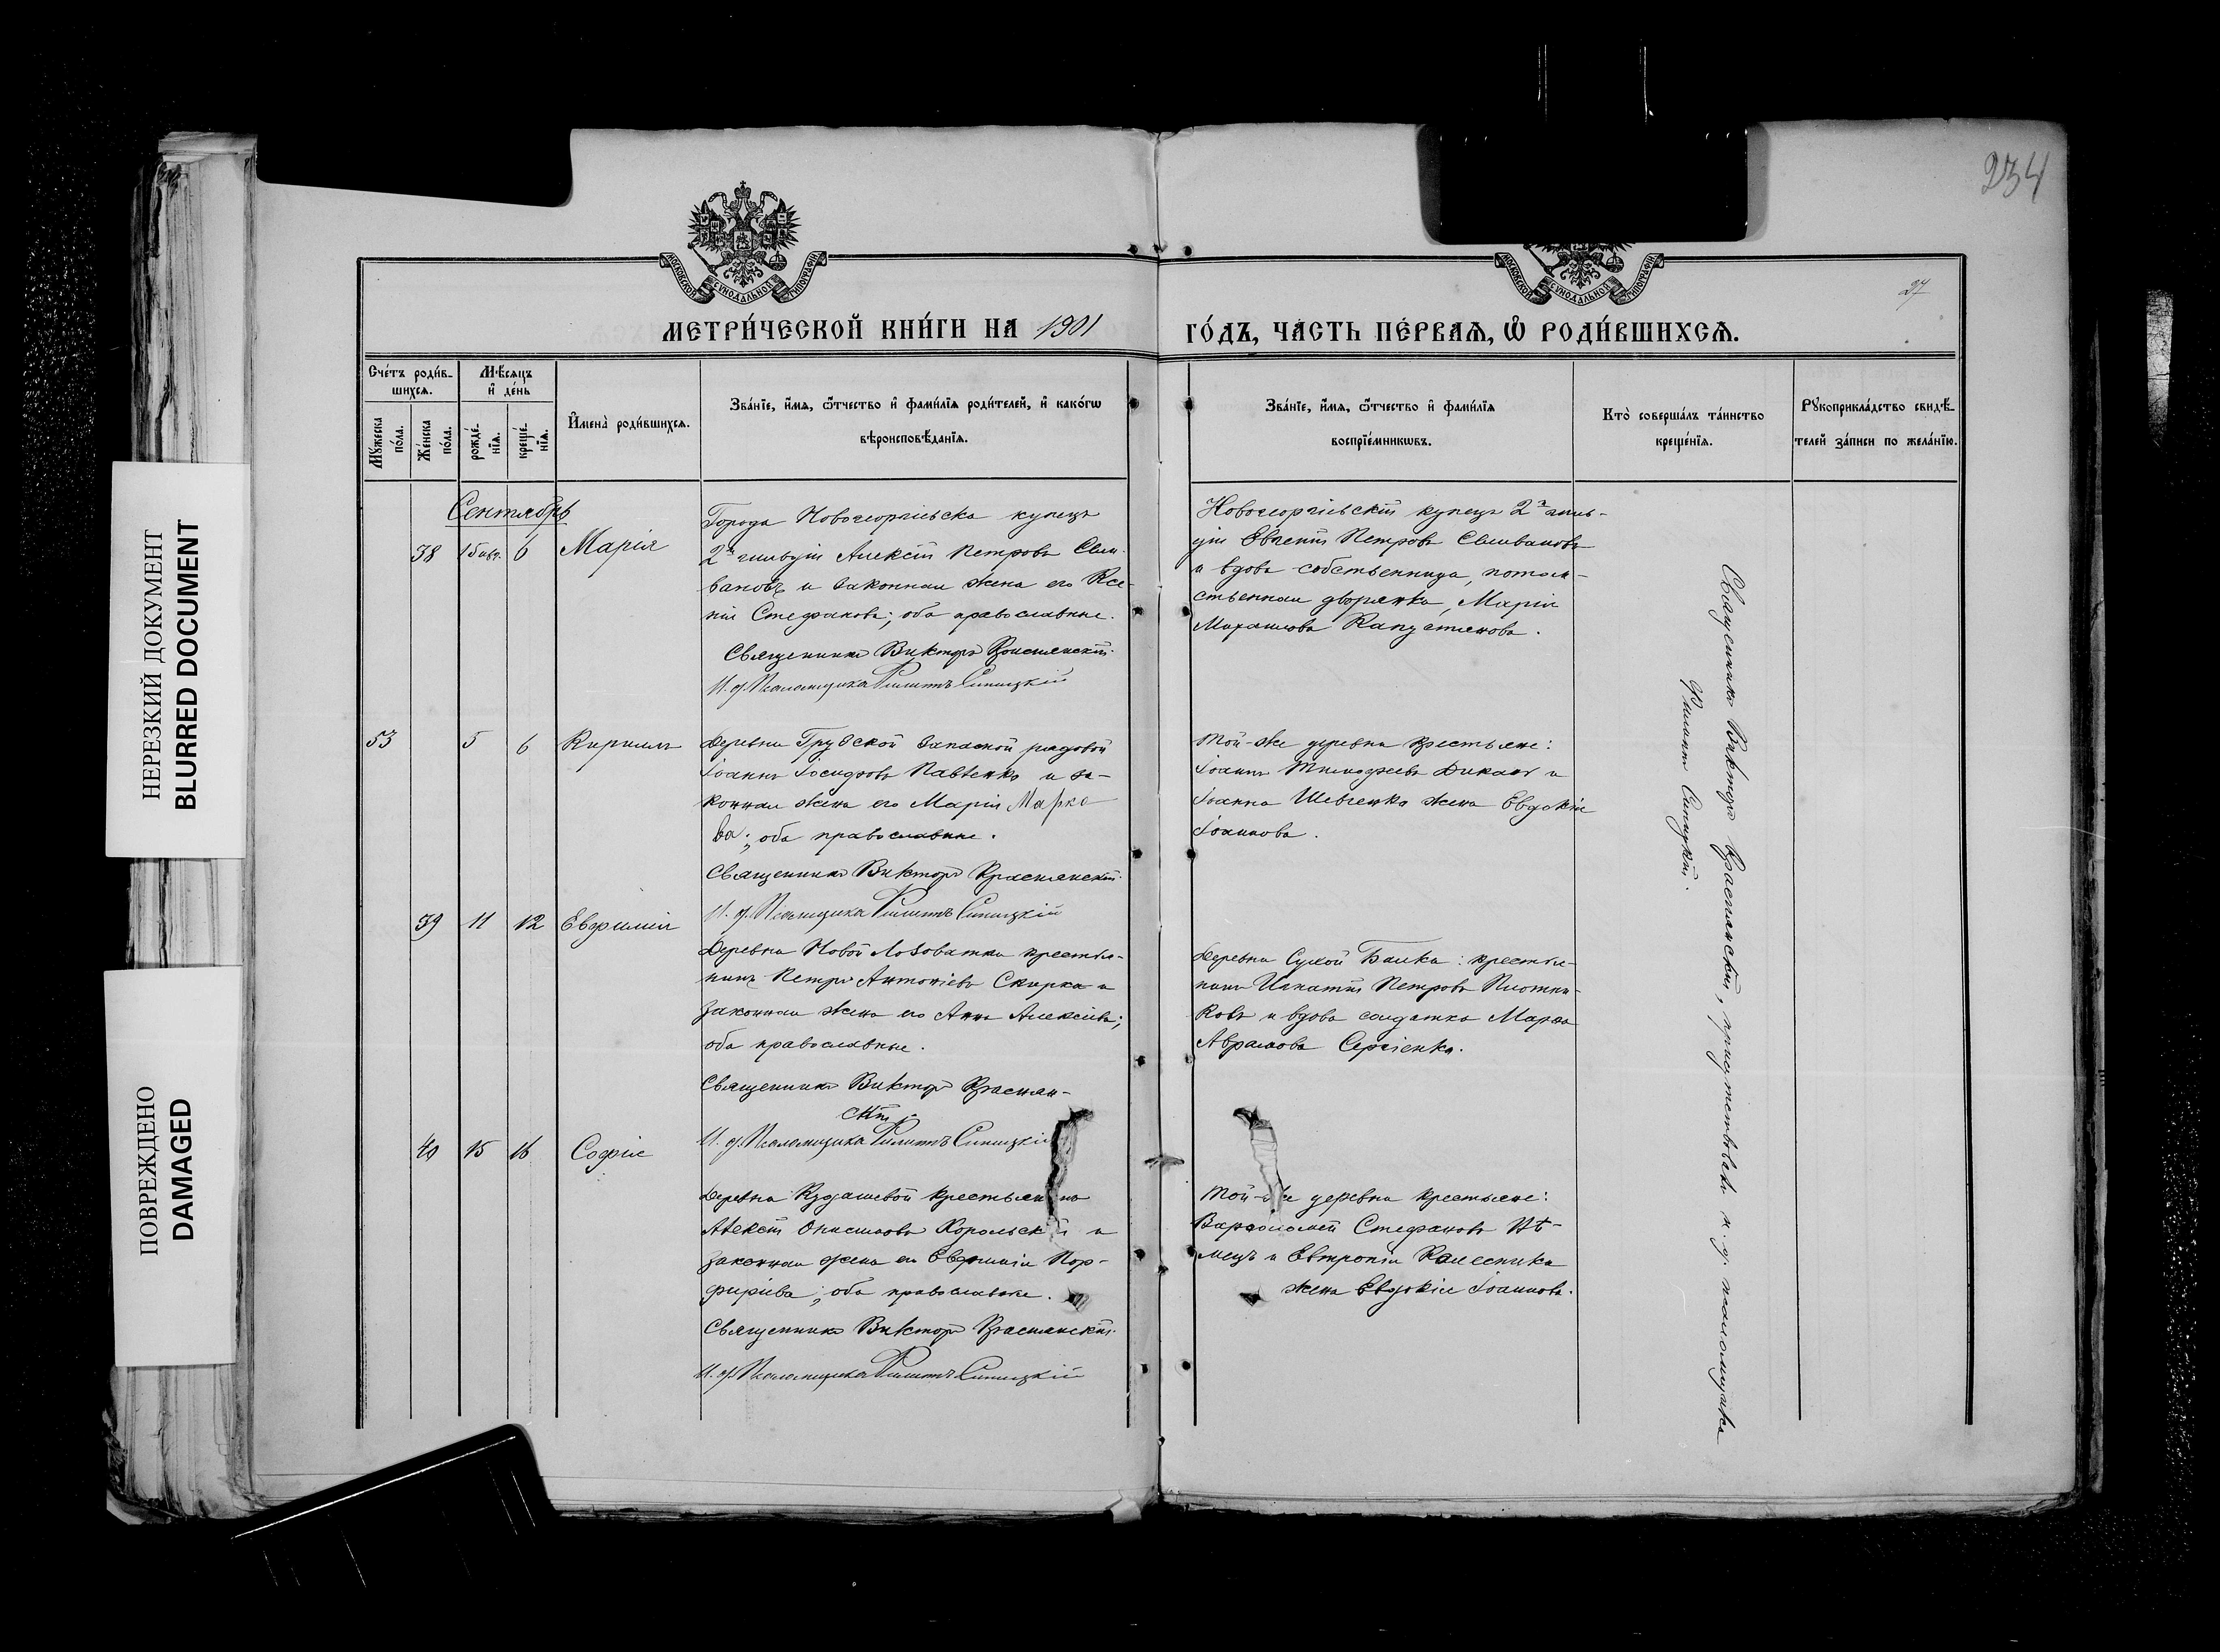 НЕРЕЗКИЙ ДОКУМЕНТ
BLURRED DOCUMENT
ПОВРЕЖДЕНО
DAMAGED
234
27
МОСКОВСКОЙ СѴНОДАЛЬНОЙ ТИПОГРАФІИ
МОСКОВСКОЙ СѴНОДАЛЬНОЙ ТИПОГРАФІИ
МЕТРИ́ЧЕСКОЙ КНИ́ГИ НА 1901
ГО́ДЪ, ЧА́СТЬ ПЕ́РВАѦ, Ѡ҆ РОДИ́ВШИХСѦ.
Сче́тъ роди́в-
шихсѧ.
Мꙋ́жеска
по́ла.
Же́нска
по́ла.
Мѣ́сѧцъ
и҆ де́нь
рожде́-
нїѧ.
креще́-
нїѧ.
И҆мена̀ роди́вшихсѧ.
Зва́нїе, и҆́мѧ, ѻ҆́тчество и҆ фами́лїѧ роди́телей, и҆ како́гѡ
вѣроисповѣ́данїѧ.
Зва́нїе, и҆́мѧ, ѻ҆́тчество и҆ фами́лїѧ
воспрїе́мникѡвъ.
Кто̀ соверша́лъ та́инство
креще́нїѧ.
Рꙋкоприкла́дство свидѣ́-
телей за́писи по жела́нїю.
Сентябрь
38 6 Марія
Города Новогеоргіевска купецъ
2й гильдіи Алексій Петровъ Сели-
вановъ и законная жена его Ксе-
нія Стефанова; оба православные.
Священникъ Викторъ Краснянскій.
И. д. Псаломщика Филиппъ Синицкій
Новогеоргіевскій купецъ 2й гиль-
діи Евгеній Петровъ Селивановъ
и вдова собственница, потом-
ственная дворянка, Марія
Михаилова Капустянова.
53 5 6 Кириллъ
Деревни Грубской запасной рядовой
Іоаннъ Іосифовъ Павленко и за-
конная жена его Марія Марко-
ва; оба православные.
Священникъ Викторъ Краснянскій.
И. д. Псаломщика Филиппъ Синицкій
Той-же деревни крестьяне:
Іоаннъ Тимофеевъ Диканъ и
Іоанна Шевченка жена Евдокія
Іоаннова.
39 11 12 Евфимія
Деревни Новой Лозоватки крестья-
нинъ Петръ Антоніевъ Скирка и
законная жена его Анна Алексіева;
оба православные.
Священникъ Викторъ Краснян-
скій.
И. д. Псаломщика Филиппъ Синицкій
Деревни Сухой Балки: крестья-
нинъ Игнатій Петровъ Плотни-
ковъ и вдова солдатка Марфа
Аврамова Сергіенко.
40 15 16 Софія
Деревни Кудашевой крестьянинъ
Алексій Онисимовъ Корольскій и
законная жена его Евфимія Пор-
фиріева; оба православные.
Священникъ Викторъ Краснянскій.
И. д. Псаломщика Филиппъ Синицкій
Той-же деревни крестьяне:
Варфоломей Стефановъ Нѣ-
мецъ и Евтропія Колесника
жена Евдокія Іоаннова.
Священникъ Викторъ Краснянскій, при и. д. псаломщика
Филиппъ Синицкій.